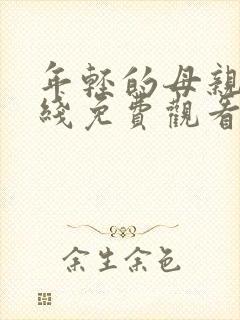 年轻的母親
綫免費觀看
余生余色